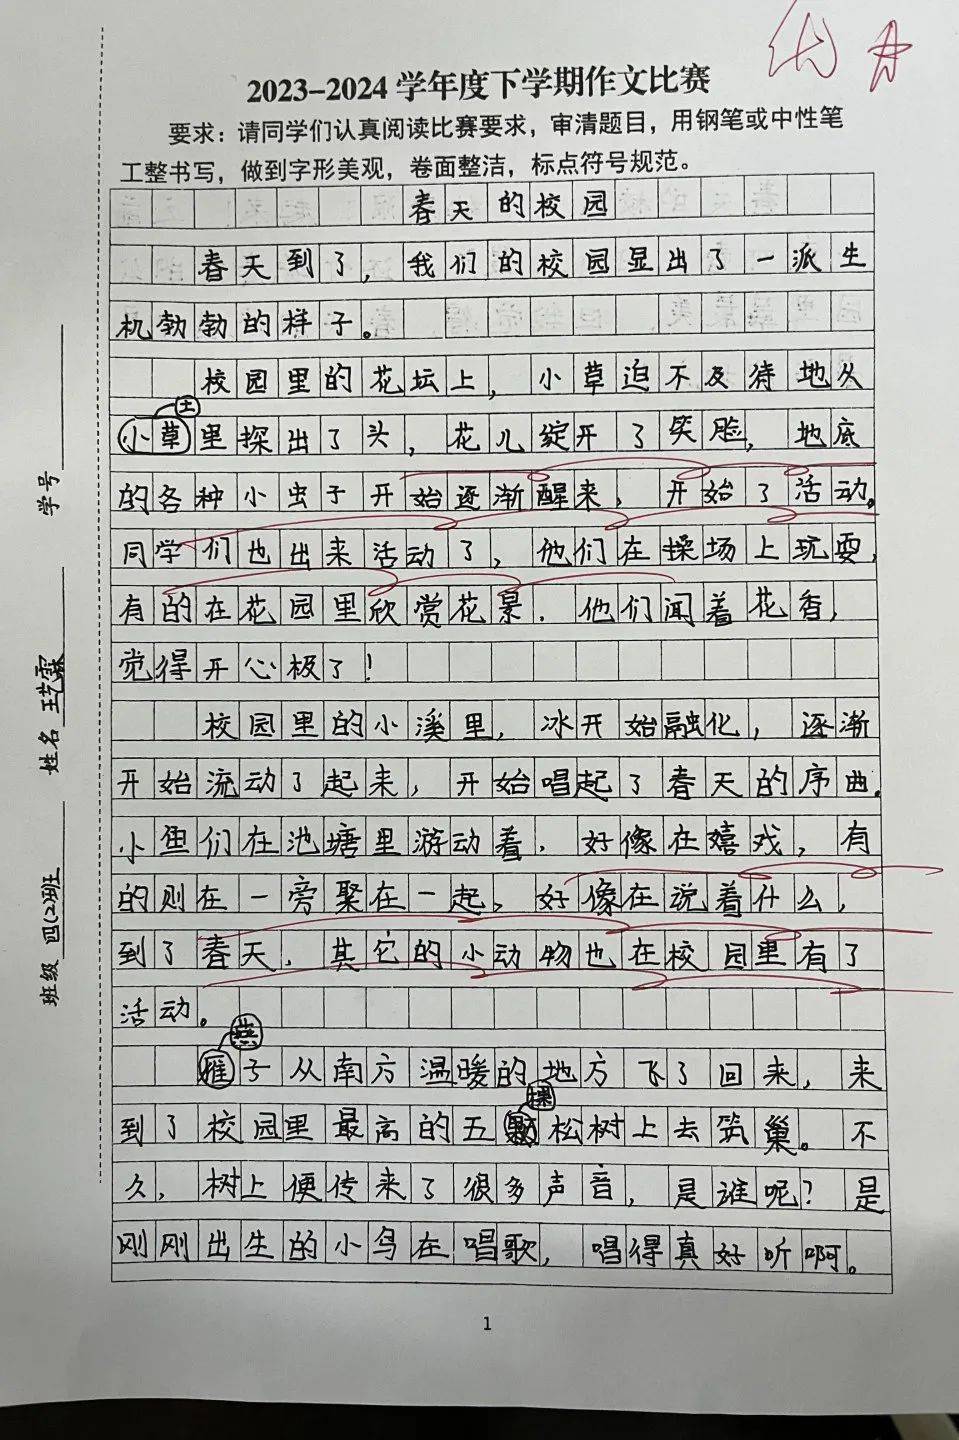 优 A
2023-2024 学年度下学期作文比赛
要求：请同学们认真阅读比赛要求，审清题目，用钢笔或中性笔
工整书写，做到字形美观，卷面整洁，标点符号规范。
春天的校园
春天到了，我们的校园显出了一派生
机勃勃的样子。
校园里的花坛上，小草迫不及待地从
土
小草里探出了头，花儿绽开了笑脸，地底
的各种小虫子开始逐渐醒来，开始了活动。
同学们也出来活动了，他们在操场上玩耍，
有的在花园里欣赏花景．他们闻着花香，
觉得开心极了！
校园里的小溪里，冰开始融化，逐渐
开始流动了起来，开始唱起了春天的序曲。
小鱼们在池塘里游动着．好像在嬉戏，有
的则在一旁聚在一起，好像在说着什么，
到了春天．其它的小动物也在校园里有了
活动。
燕
雁子从南方温暖的地方飞了回来，来
棵
到了校园里最高的五颗松树上去筑巢。不
久，树上便传来了很多声音，是谁呢？是
刚刚出生的小鸟在唱歌，唱得真好听啊。
1
学号
姓名 王艺霖
班级 四(2)班